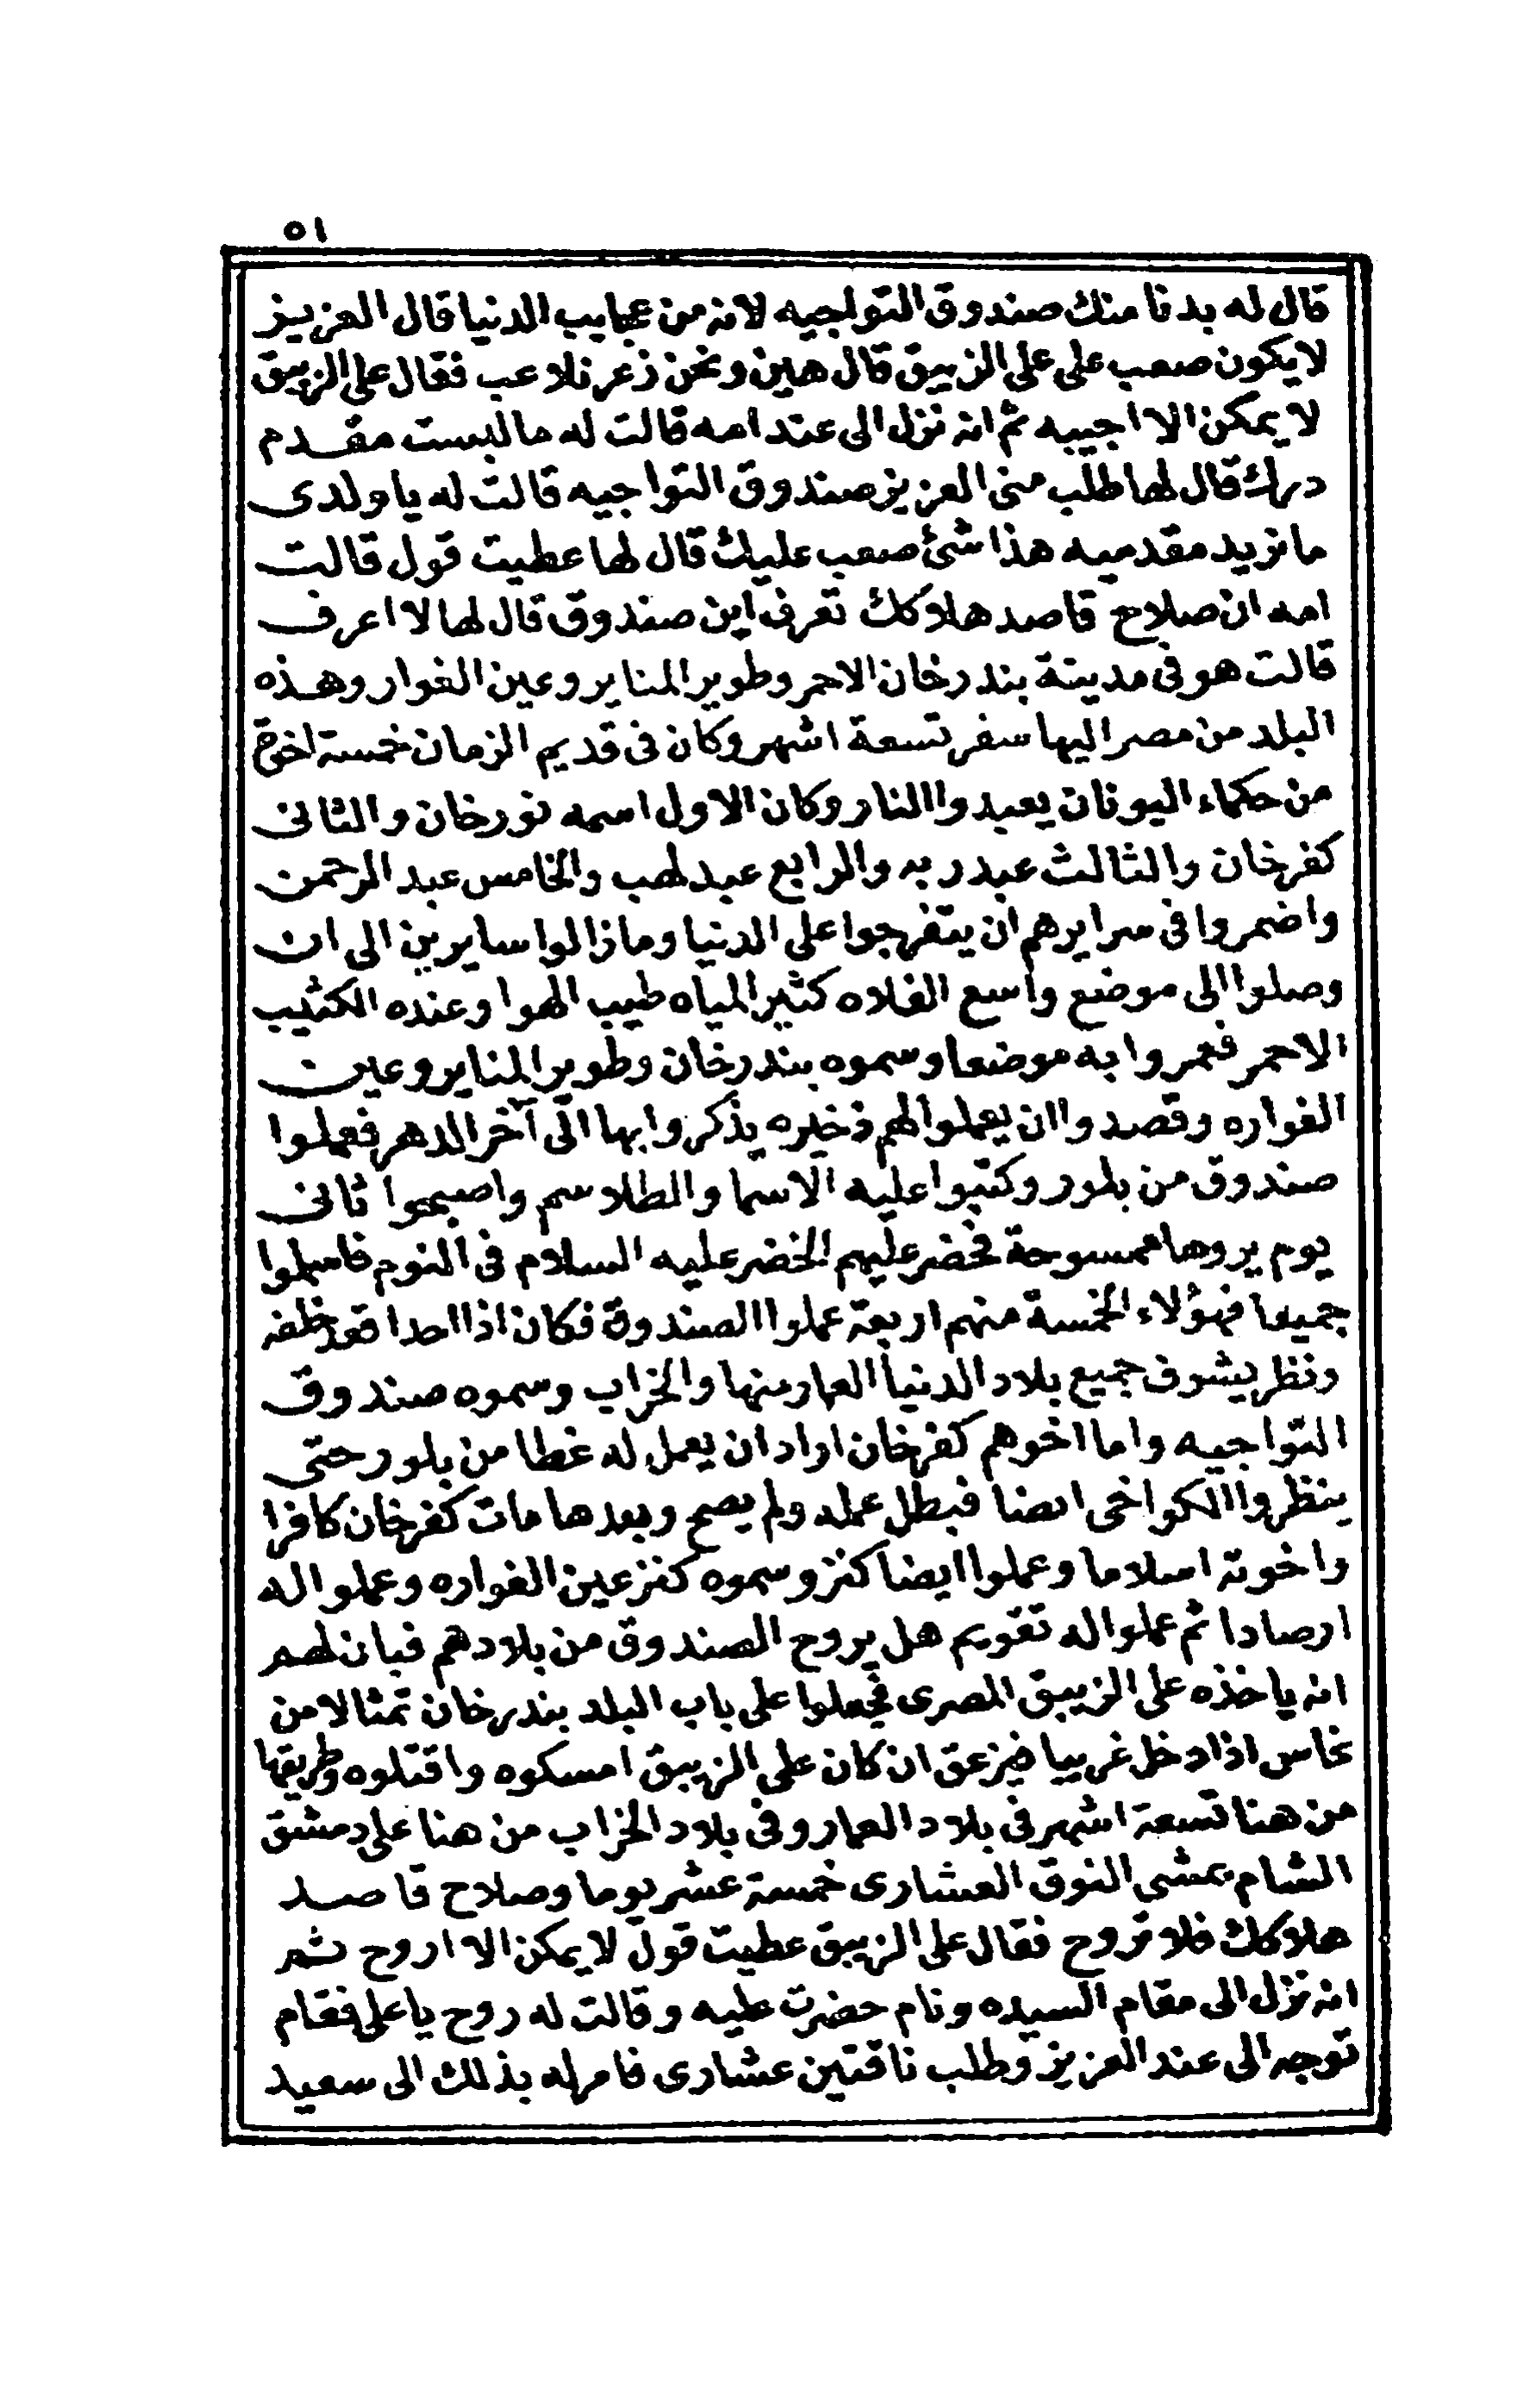 ٥١
قال له بدنا منك صندوق التواجيه لانه من عجايب الدنيا قال العزيز
لا يكون صعب على على الزيبق قال هين ونحن ذعر نلاعب فقال على الزيبق
لا يمكن الا اجيبه ثم انه نزل الى عند امه قالت له ما لبست مقدم
درك قال لها طلب منى العزيز صندوق التواجيه قالت له يا ولدى
ما نريد مقدميه هذا شئ صعب عليك قال لها عطيت قول قالت
امه ان صلاح قاصد هلاكك تعرف اين صندوق قال لها لا اعرف
قالت هو فى مدينة بندرخان الاحمر وطوير المناير وعين الفوار وهذه
البلد من مصر اليها سفر تسعة اشهر وكان فى قديم الزمان خمسة اخوة
من حكماء اليونان يعبدوا النار وكان الاول اسمه نورخان والثانى
كفرخان والثالث عبد ربه والرابع عبد لهب والخامس عبد الرحمن
واضمروا فى سرايرهم ان يتفرجوا على الدنيا وما زالوا سايرين الى ان
وصلوا الى موضع واسع الفلاه كثير المياه طيب الهوا وعنده الكثيب
الاحمر فعمروا به موضعا وسموه بندرخان وطوير المناير وعين
الفواره وقصدوا ان يعملوا لهم ذخيره يذكروا بها الى آخر الدهر فعملوا
صندوق من بلور وكتبوا عليه الاسما والطلاسم واصبحوا ثانى
يوم يروها ممسوحة فحضر عليهم الخضر عليه السلام فى النوم فاسلموا
جميعا فهؤلاء الخمسة منهم اربعة عملوا الصندوق فكان اذا احدا قعد خلفه
ونظر يشوف جميع بلاد الدنيا العمار منها والخراب وسموه صندوق
التواجيه واما اخوهم كفرخان اراد ان يعمل له غطا من بلور حتى
ينظروا الكواخى ايضا فبطل عمله ولم يصح وبعدها مات كفرخان كافرا
واخوته اسلاما وعملوا ايضا كنز وسموه كنز عين الفواره وعملوا له
ارصادا ثم عملوا له تقويم هل يروح الصندوق من بلادهم فبان لهم
انه ياخذه على الزيبق المصرى فجعلوا على باب البلد بندرخان تمثالا من
نحاس اذا دخل غريبا فيزعق ان كان على الزيبق امسكوه واقتلوه وطريقها
من هنا تسعة اشهر فى بلاد العمار وفى بلاد الخراب من هنا على دمشق
الشام بمشى النوق العشارى خمسة عشر يوما وصلاح قاصد
هلاكك فلا تروح فقال على الزيبق عطيت قول لا يمكن الا اروح ثم
انه نزل الى مقام السيده ونام حضرت عليه وقالت له روح يا على فقام
توجه الى عند العزيز وطلب ناقتين عشارى فامر له بذلك الى سعيد